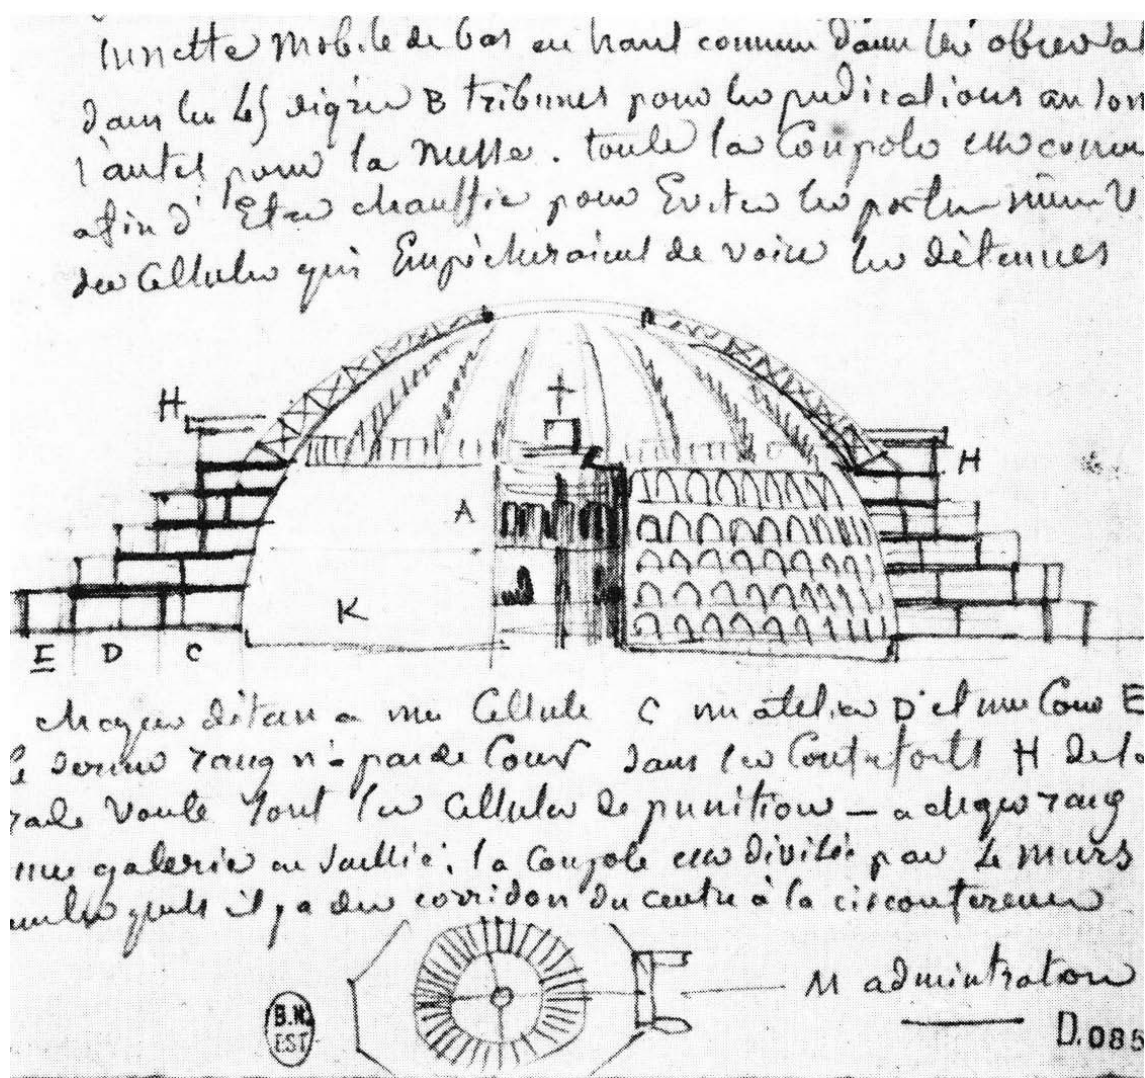 lunette mobile de bas en haut comme dans les observat
dans les 4 B tribunes pour les predications au
l'autel pour la messe. toute la Coupole est
afin d'Etre chauffée pour Eviter les portes
des Cellules qui Empêcheraient de voir les détenues
H
H
A
K
E D C
chaque déten a une Cellule C un atelier D et une Cour E
le dernier rang n'a pas de Cour dans les Contreforts H de la
voute sont les Cellules de punition — a chaque rang
une galerie en saillie, la Coupole est divisée par 4 murs
il y a des corridor du centre à la circonference
M admintration
B.N.
EST.
D.085